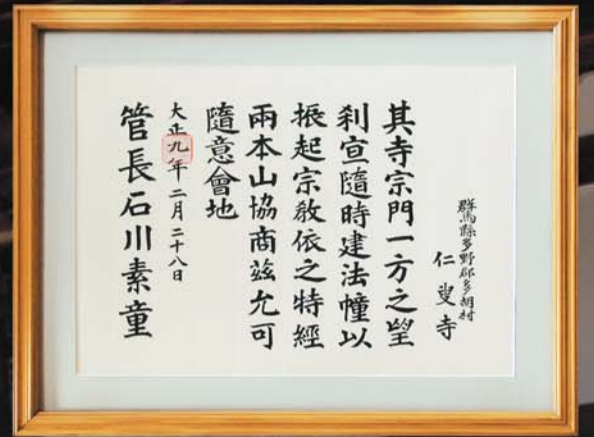 群馬縣多野郡多胡村
仁叟寺
其寺宗門一方之望
刹宣隨時建法幢以
振起宗教依之特經
兩本山協商玆允可
隨意會地
大正九年二月二十八日
管長石川素童